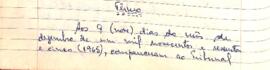 Termo
Aos 9 (nove) dias do mês de
dezembro de um mil novecentos e sessenta
e cinco (1965), compareceu ao Tribunal